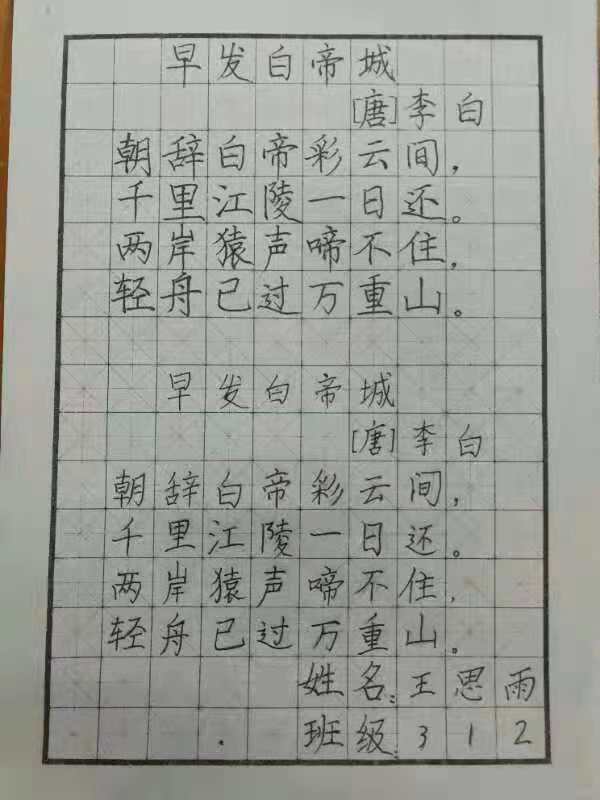 早发白帝城
[唐]李白
朝辞白帝彩云间，
千里江陵一日还。
两岸猿声啼不住，
轻舟已过万重山。
早发白帝城
[唐]李白
朝辞白帝彩云间，
千里江陵一日还。
两岸猿声啼不住，
轻舟已过万重山。
姓名：王思雨
班级：312